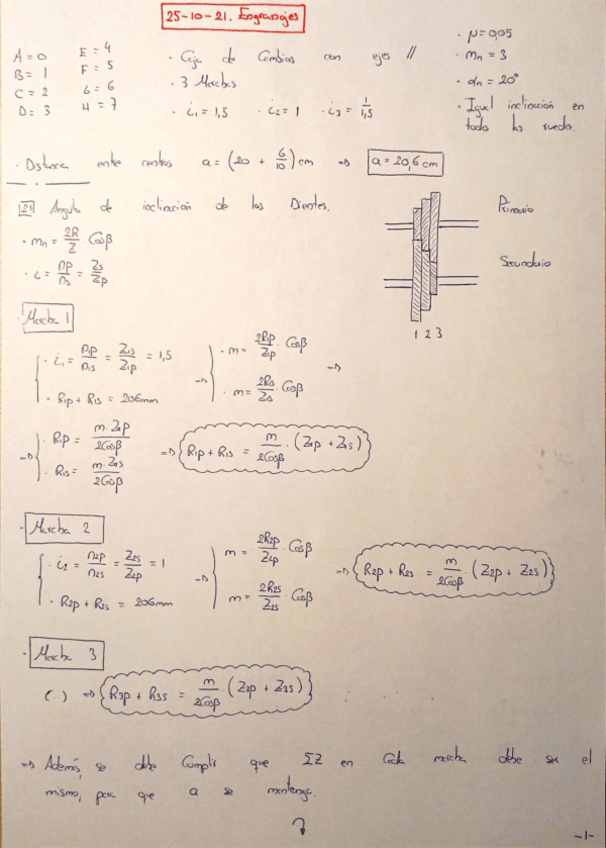 25-10-21. Engranajes
A = 0
B = 1
C = 2
D = 3
E = 4
F = 5
G = 6
H = 7
· Caja de Cambios con ejes //
· 3 Marchas
· i₁ = 1,5 · i₂ = 1 · i₃ = 1/1,5
· μ = 0,05
· mn = 3
· αn = 20°
· Igual inclinación en
todas las ruedas.
· Distancia entre centros a = (20 + 6/10) cm => a = 20,6 cm
2.1 Angulo de inclinación de los Dientes.
· mn = 2R/Z Cosβ
· i = np/ns = Zs/Zp
Primario
Secundario
1 2 3
· Marcha 1
· i₁ = n1p/n1s = Z1s/Z1p = 1,5
· R1p + R1s = 206mm
· m = 2R1p/Z1p · Cosβ
· m = 2R1s/Z1s · Cosβ
· R1p = m·Z1p/2Cosβ
· R1s = m·Z1s/2Cosβ
=> R1p + R1s = m/2Cosβ · (Z1p + Z1s)
· Marcha 2
· i₂ = n2p/n2s = Z2s/Z2p = 1
· R2p + R2s = 206mm
m = 2R2p/Z2p · Cosβ
m = 2R2s/Z2s · Cosβ
=> R2p + R2s = m/2Cosβ · (Z2p + Z2s)
· Marcha 3
( ) => R3p + R3s = m/2Cosβ · (Z3p + Z3s)
=> Además, se debe Cumplir que ΣZ en Cada marcha debe ser el
mismo, para que a se mantenga.
-1-